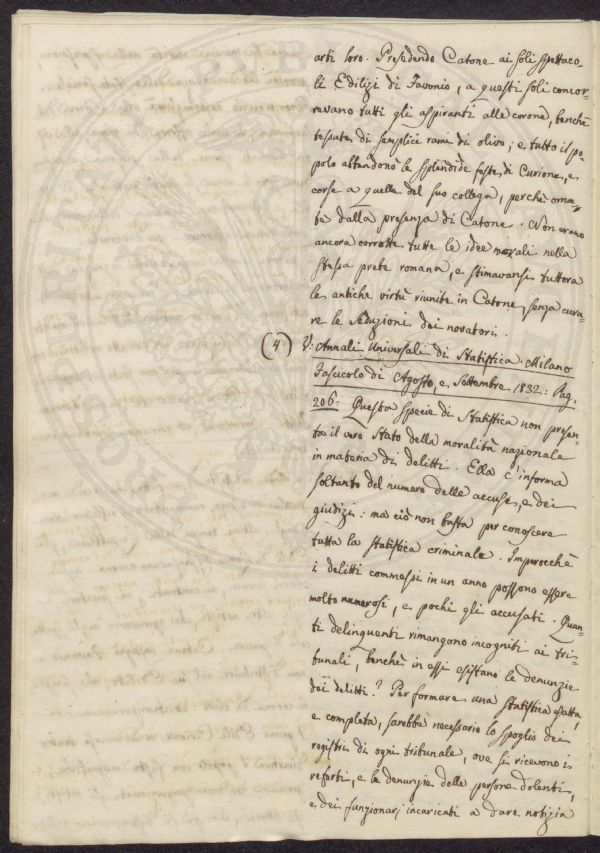 arti loro. Presedendo Catone ai soli spettaco-
li Edilizi di Favonio, a questi soli concor-
revano tutti gli aspiranti alle corone, benchè
tessute di semplice rami di olivo; e tutto il po-
polo abbandonò le splendide feste di Curione, e
corse a quelle del suo collega, perchè orna-
te dalla presenza di Catone. Non erano
ancora corrotte tutte le idee morali nella
stessa plebe romana, e stimavansi tuttora
le antiche virtù riunite in Catone, senza cura-
re le seduzioni dei novatori.
(4:) V: Annali Universali di Statistica. Milano
Fascicolo di Agosto, e Settembre 1832: Pag.
206: Questa specie di Statistica non presen-
ta il vero Stato della moralità nazionale
in materia di delitti. Ella c'informa
soltanto del numero delle accuse, e dei
giudizj: ma ciò non basta per conoscere
tutta la statistica criminale. Imperocchè
i delitti commessi in un anno possono essere
molto numerosi, e pochi gli accusati. Quan-
ti delinquenti rimangono incogniti ai tri-
bunali, benchè in essi esistano le denunzie
dei delitti? Per formare una Statistica esatta,
e completa, sarebbe necessario lo spoglio dei
registri di ogni tribunale, ove si ricevono i
referti, e le denunzie delle persone dolenti,
e dei funzionarj incaricati a dare notizia